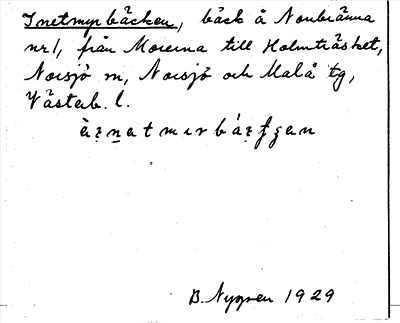 Inetmyrbäcken, bäck å Norrbränna
nr 1, från Morerna till Holmträsket,
Norsjö sn, Norsjö och Malå tg,
Västerb. l.
B. Nygren 1929